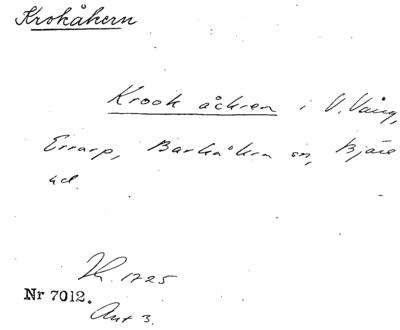 Krokåkern
Krook åckren i V. Vång,
Errarp, Barkåkra sn, Bjäre
hd.
Lh. 1725
Nr 7012.
Ant 3.